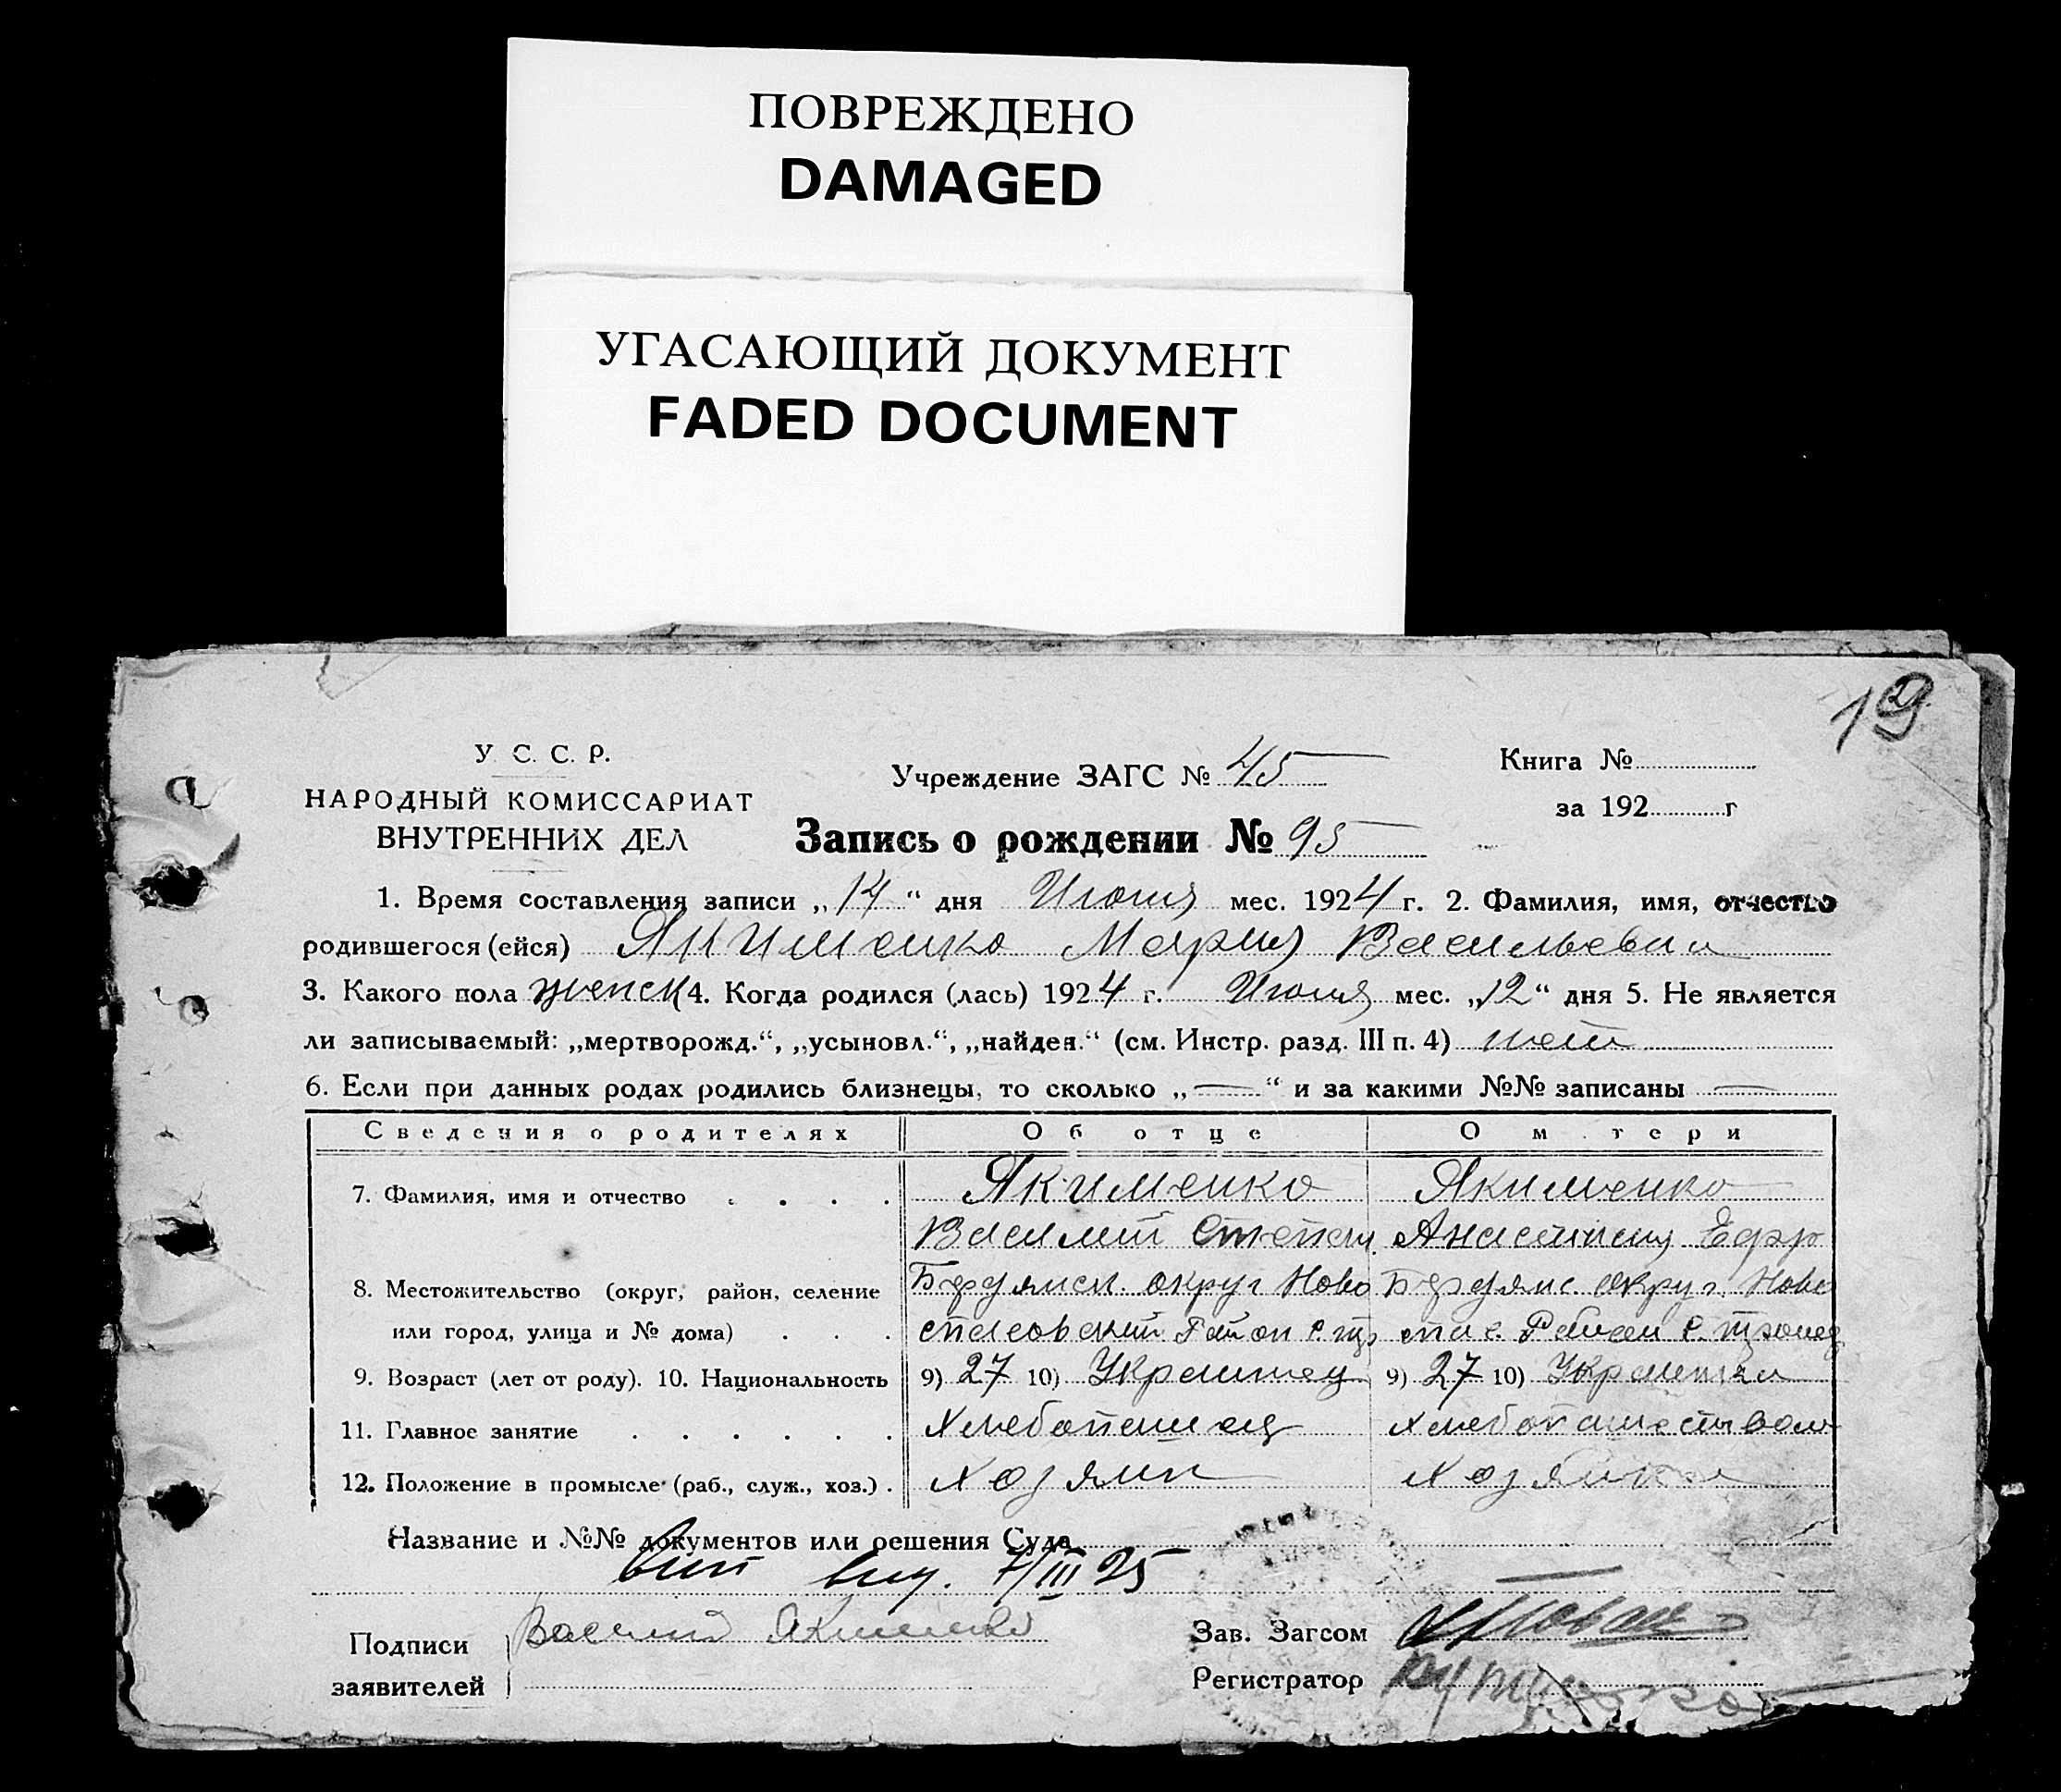 ПОВРЕЖДЕНО
DAMAGED
УГАСАЮЩИЙ ДОКУМЕНТ
FADED DOCUMENT
19
У. С. С. Р.
НАРОДНЫЙ КОМИССАРИАТ
ВНУТРЕННИХ ДЕЛ
Учреждение ЗАГС № 45
Книга №
за 192 г
Запись о рождении № 95
1. Время составления записи „14“ дня Июня мес. 1924 г. 2. Фамилия, имя, отчество
родившегося (ейся) Якименко Мария Васильевна
3. Какого пола женск 4. Когда родился (лась) 1924 г. Июня мес. „12“ дня 5. Не является
ли записываемый: „мертворожд.“, „усыновл.“, „найден.“ (см. Инстр. разд. III п. 4) нет
6. Если при данных родах родились близнецы, то сколько „—“ и за какими №№ записаны —
Сведения о родителях Об отце О м тери
7. Фамилия, имя и отчество . . . . Якименко Якименко
Василий Степан. Анастасия Ефр
8. Местожительство (округ, район, селение Бердянск. округ Ново Бердянс. округ. Ново
или город, улица и № дома) . . . спасовский Район с. спас. Район с.
9. Возраст (лет от роду). 10. Национальность 9) 27 10) Украинец 9) 27 10) Украинка
11. Главное занятие . . . . . . Хлебопашец хлебопашеством
12. Положение в промысле (раб., служ., хоз.) . Хозяин Хозяйка
Название и №№ документов или решения Суда
7/III 25
Подписи Василий Якименко
заявителей
Зав. Загсом
Регистратор